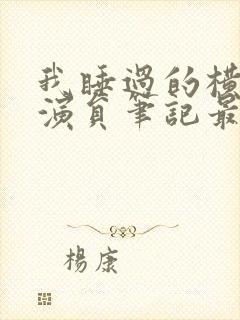 我睡過的橫
演員筆記最
楊康